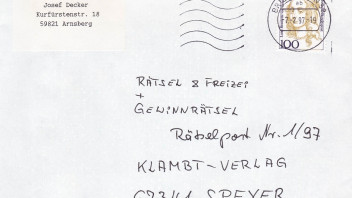 Josef Decker
Kurfürstenstr. 18
59821 Arnsberg
-7.-2.97-19
100
RÄTSEL & FREIZEI
+
GEWINNRÄTSEL
Rätselpost Nr. 1/97
KLAMBT-VERLAG
67341 SPEYER